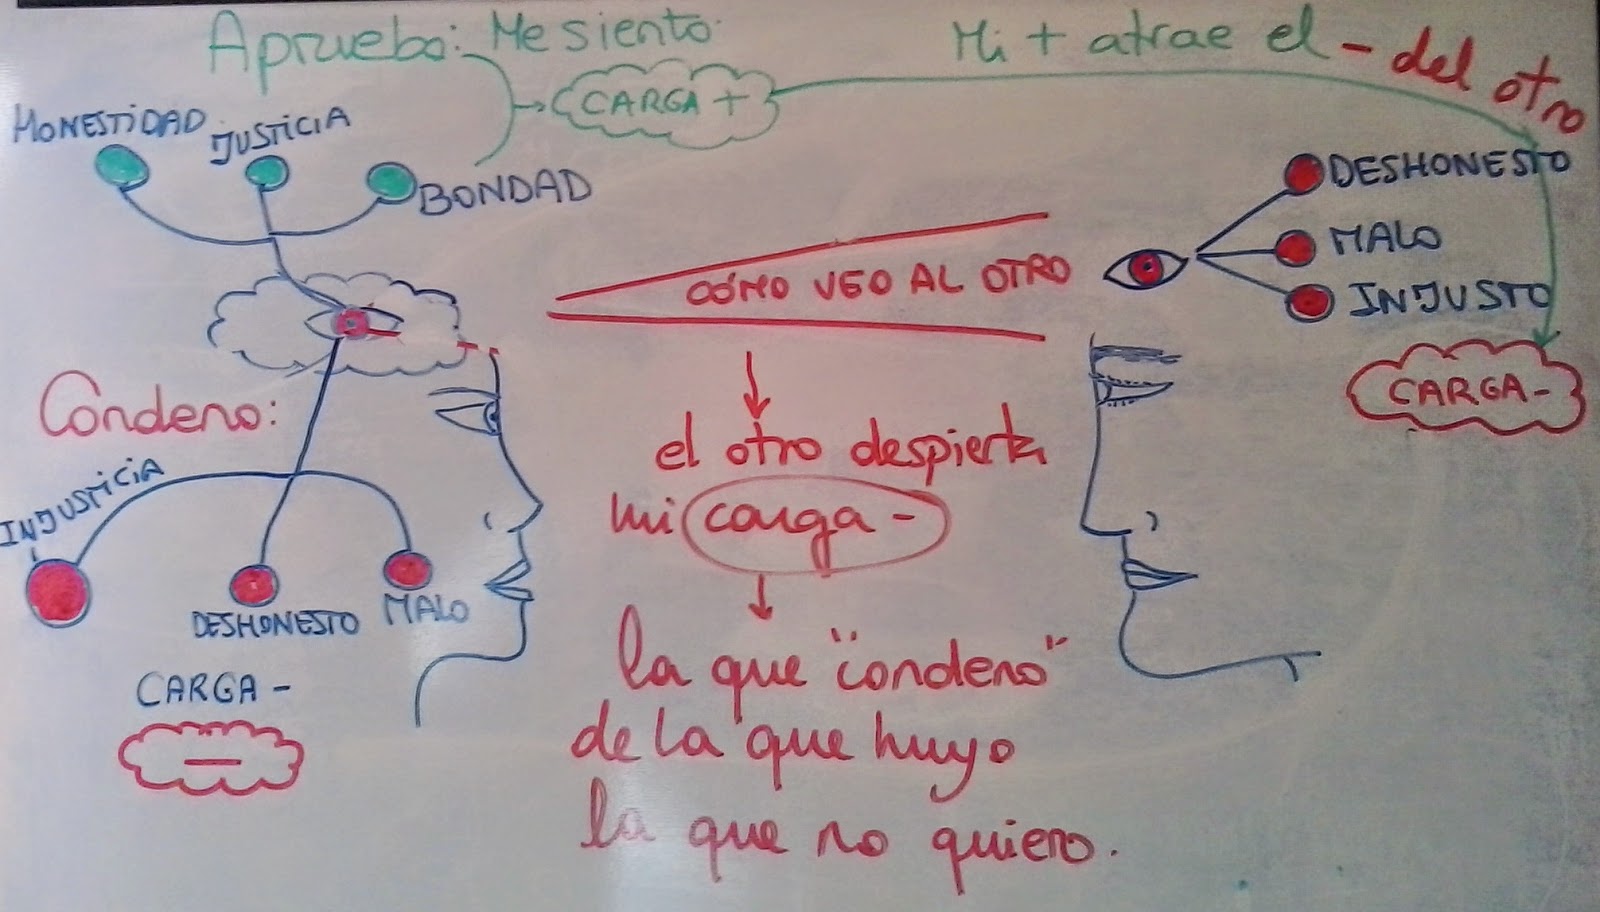 Apruebo: Me siento
CARGA +
Mi + atrae el - del otro
HONESTIDAD
JUSTICIA
BONDAD
DESHONESTO
MALO
INJUSTO
CÓMO VEO AL OTRO
CARGA -
Condeno:
INJUSTICIA
DESHONESTO
MALO
CARGA -
-
el otro despierta
mi carga -
la que "condeno"
de la que huyo
la que no quiero.